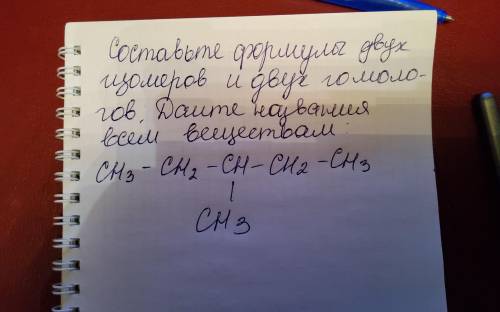 Составьте формулы двух
изомеров и двух гомоло-
гов. Дайте названия
всем веществам:
CH3 - CH2 - CH - CH2 - CH3
|
CH3